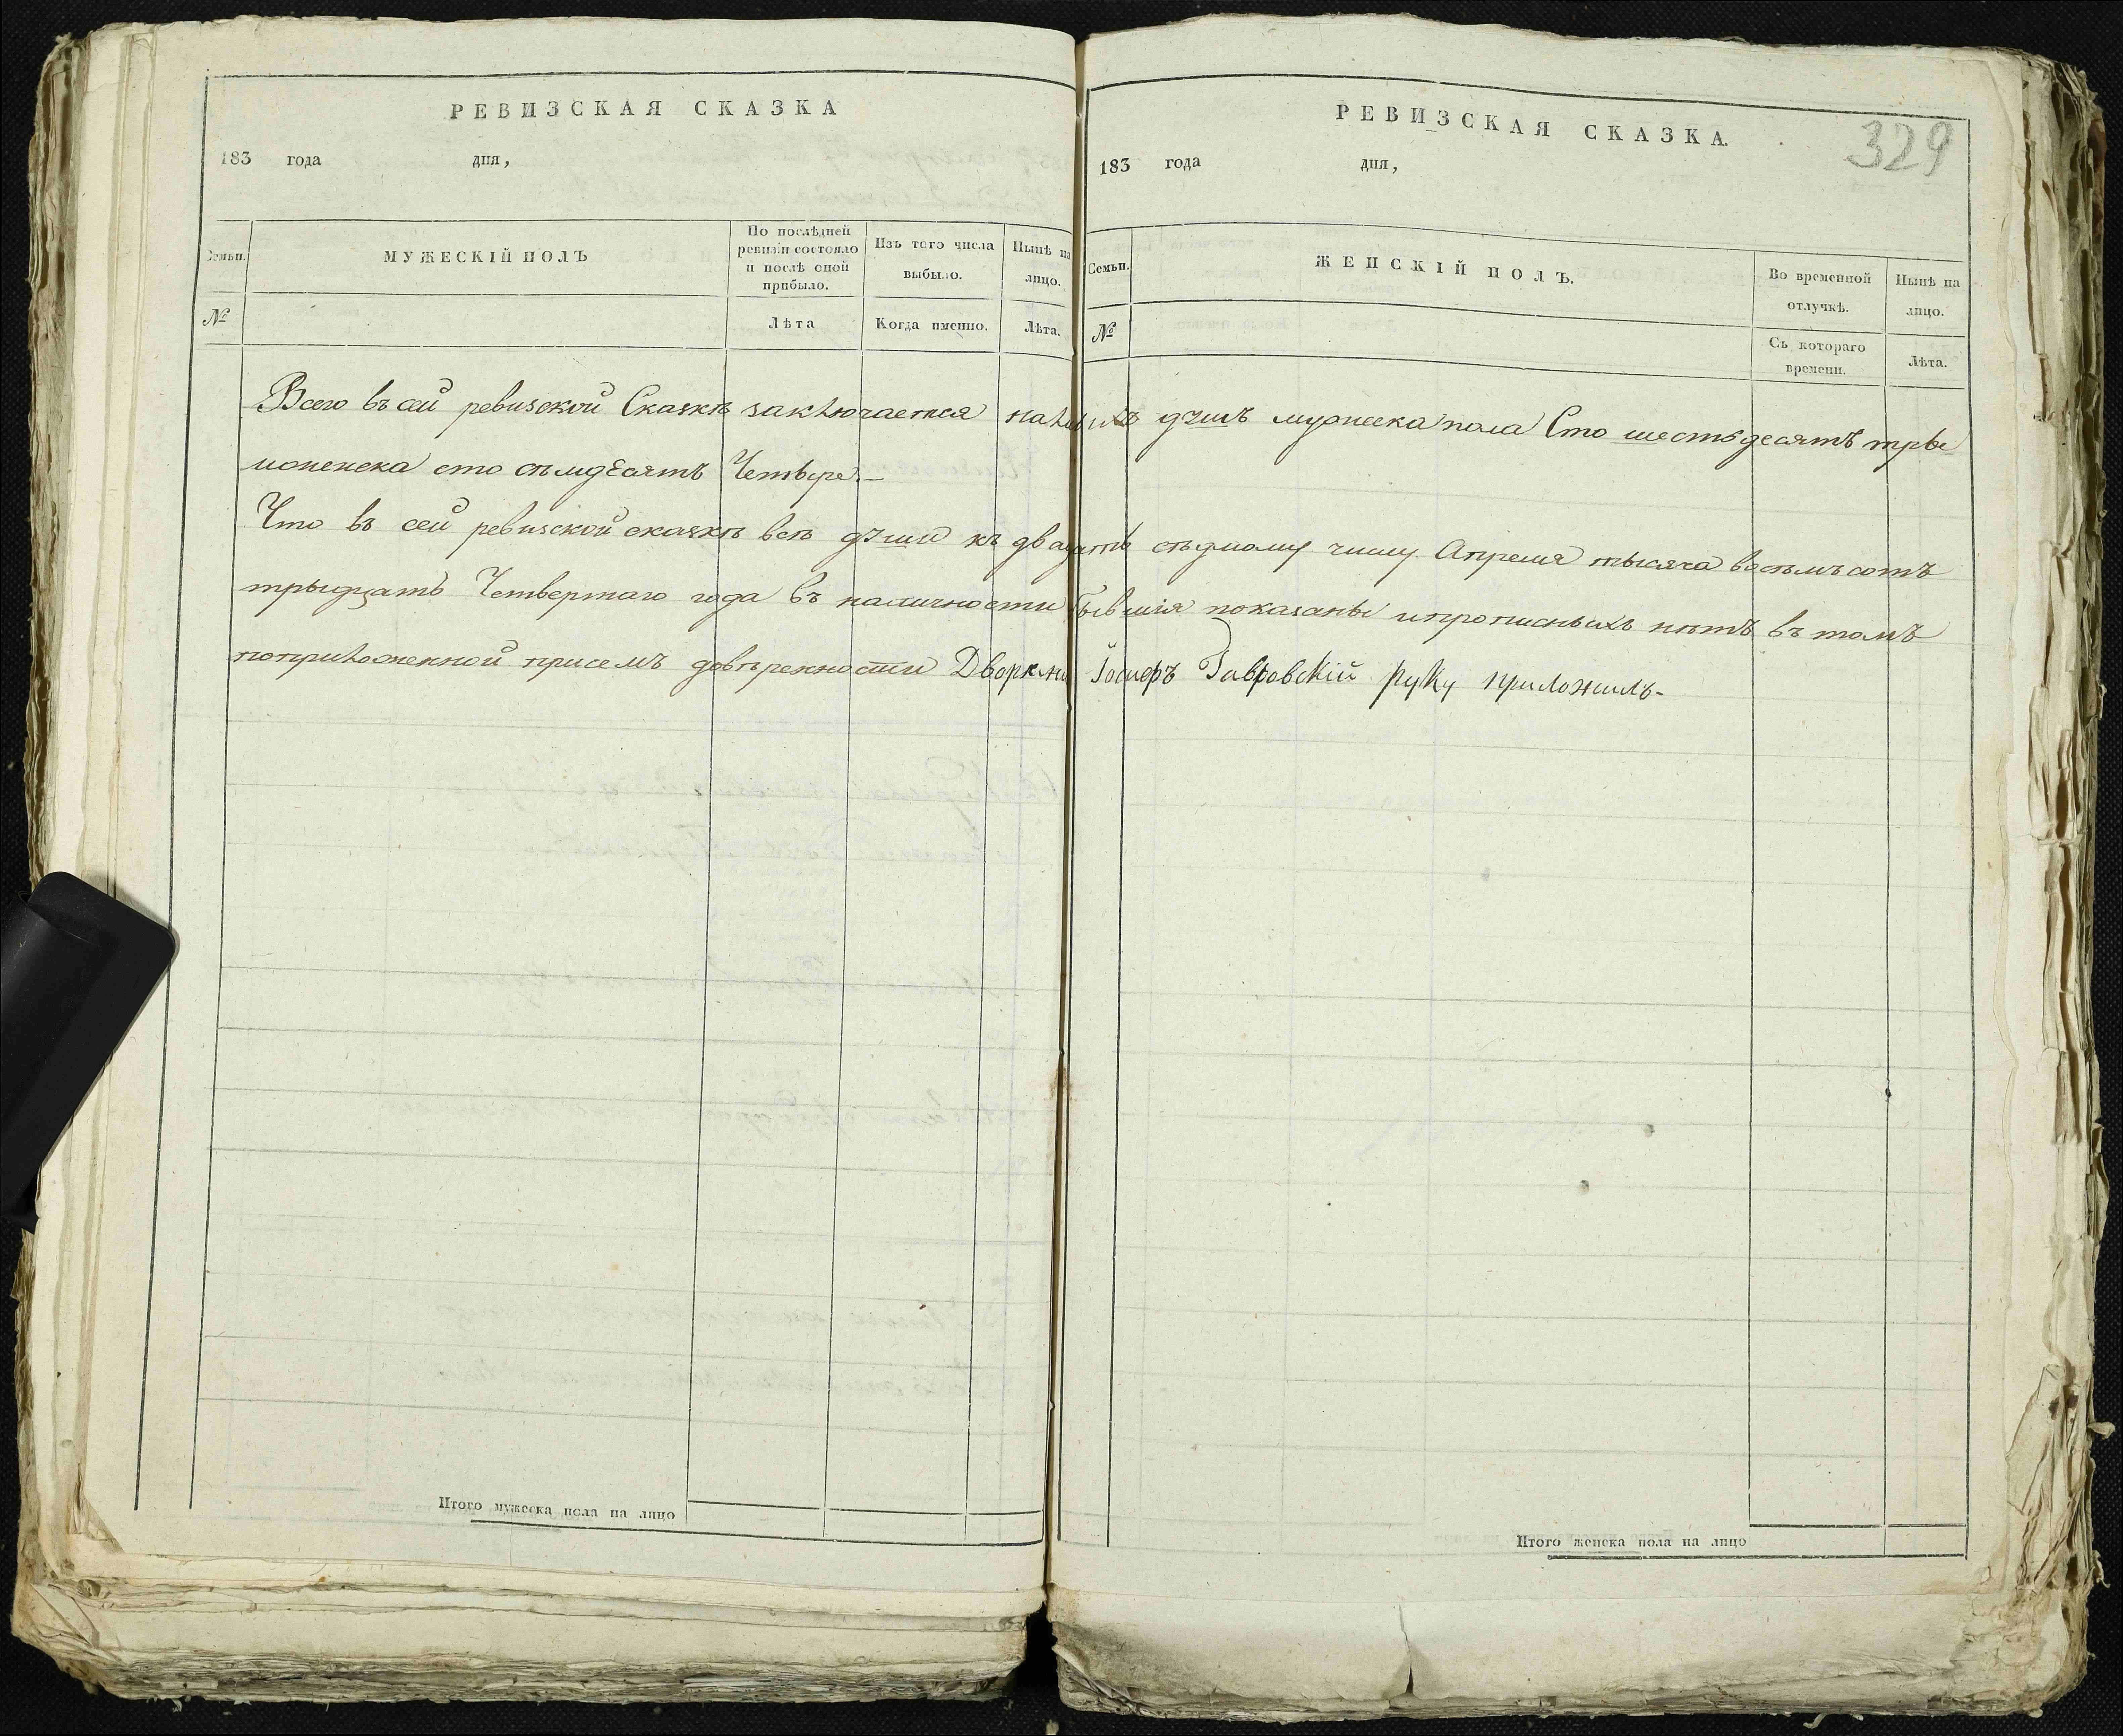 РЕВИЗСКАЯ СКАЗКА
183 года дня,
Семьи.
МУЖЕСКІЙ ПОЛЪ
По послѣдней ревизіи состояло и послѣ оной прибыло.
Изъ того числа выбыло.
Нынѣ на лицо.
№
Лѣта
Когда именно.
Лѣта.
РЕВИЗСКАЯ СКАЗКА.
329
183 года дня,
Семьи.
ЖЕНСКІЙ ПОЛЪ.
Во временной отлучкѣ.
Нынѣ на лицо.
№
Съ котораго времени.
Лѣта.
Всего въ сей ревизской Сказкѣ заключается наличныхъ душъ мужеска пола Сто шестьдесятъ тры
и женска сто сѣмдесятъ Четыре.—
Что въ сей ревизской сказкѣ всѣ души къ двадцать сѣдмому числу Апреля тысяча восѣмъсотъ
трыдцать Четвертаго года въ наличности бывшія показаны и прописныхъ нѣтъ въ томъ
по приложенной при семъ довѣренности Дворянинъ Іосифъ Гавровскій руку приложилъ.
Итого мужеска пола на лицо
Итого женска пола на лицо